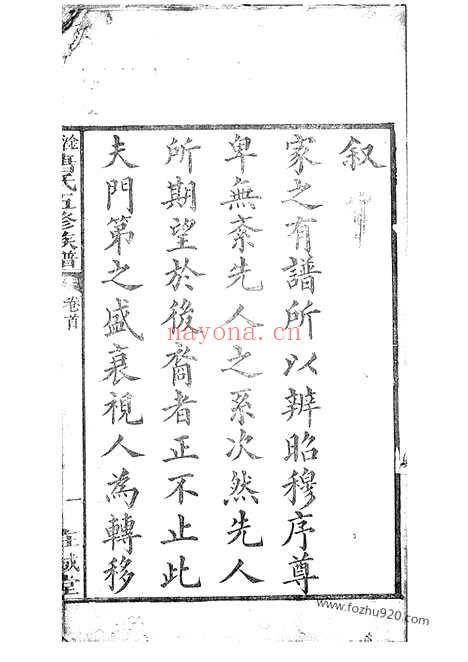 叙
家之有譜所以辨昭穆序尊
卑無紊先人之系次然先人
所期望於後裔者正不止此
夫門第之盛衰視人為轉移
氏五修族譜 卷首 一 堂
nayona.cn
www.fozhu920.com